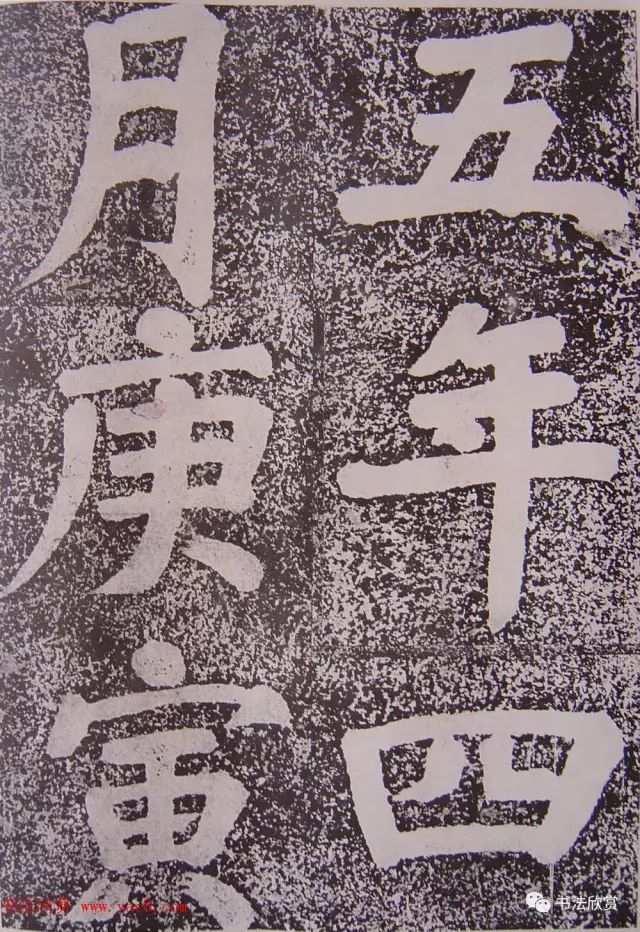 五年四
月庚寅
书法欣赏
www.yac8.com